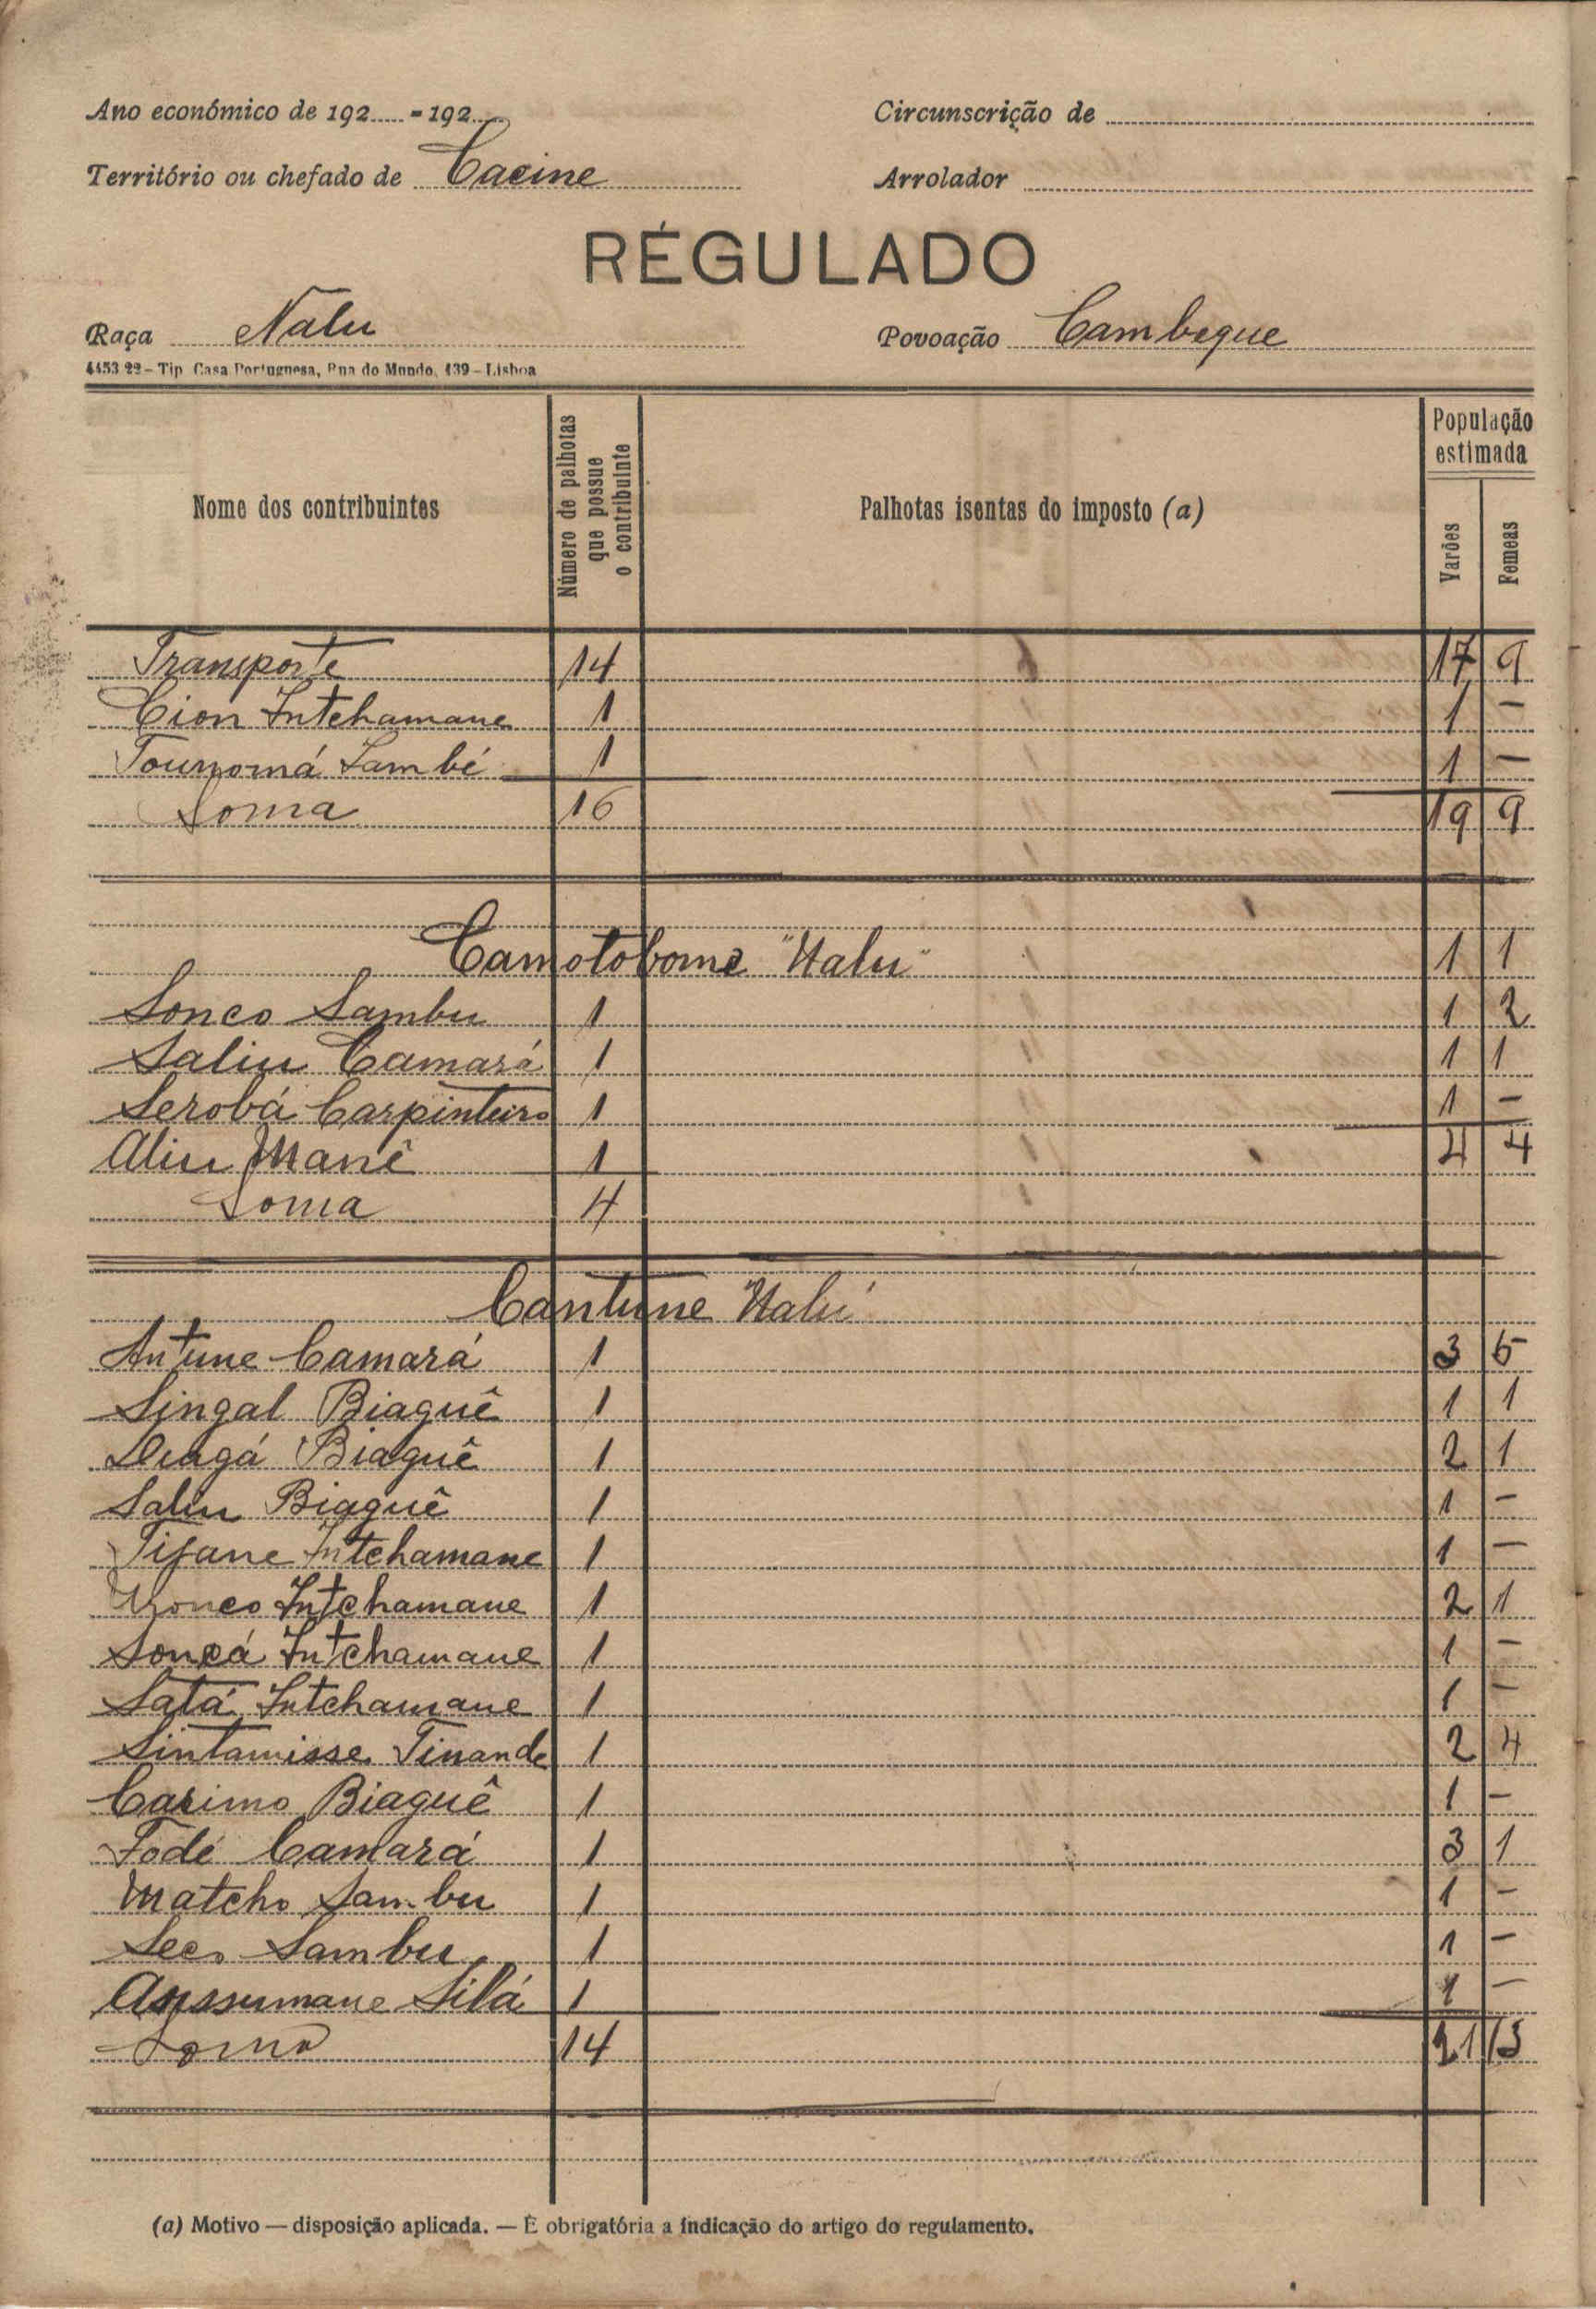 Ano económico de 192.....-192..... Circunscrição de
Território ou chefado de Cacine Arrolador
RÉGULADO
Raça Nalu Povoação Cambeque
4453 22 – Tip. Casa Portuguesa, Rua do Mundo, 139 – Lisboa
Nome dos contribuintes Número de palhotas que possue o contribuinte Palhotas isentas do imposto (a) População estimada Varões Femeas
Transporte 14 17 9
Cion Intchamane 1 1 –
Sambé 1 1 –
Soma 16 19 9
Camotobome "Nalu" 1 1
Sonco Sambu 1 1 2
Saliu Camará 1 1 1
Serobá Carpinteiro 1 1 –
Aliu Mané 1 4 4
Soma 4
Cantune "Nalú"
Antune Camará 1 3 5
Singal Biaguê 1 1 1
Biaguê 1 2 1
Saliu Biaguê 1 1 –
Tijane Intchamane 1 1 –
Intchamane 1 2 1
Soncá Intchamane 1 1 –
Satá Intchamane 1 1 –
Sintamisse Tinande 1 2 4
Carimo Biaguê 1 1 –
Fodé Camará 1 3 1
Matcho Sambu 1 1 –
Seco Sambu 1 1 –
Anssumane Silá 1 1 –
Soma 14 21 13
(a) Motivo — disposição aplicada. — É obrigatória a indicação do artigo do regulamento.